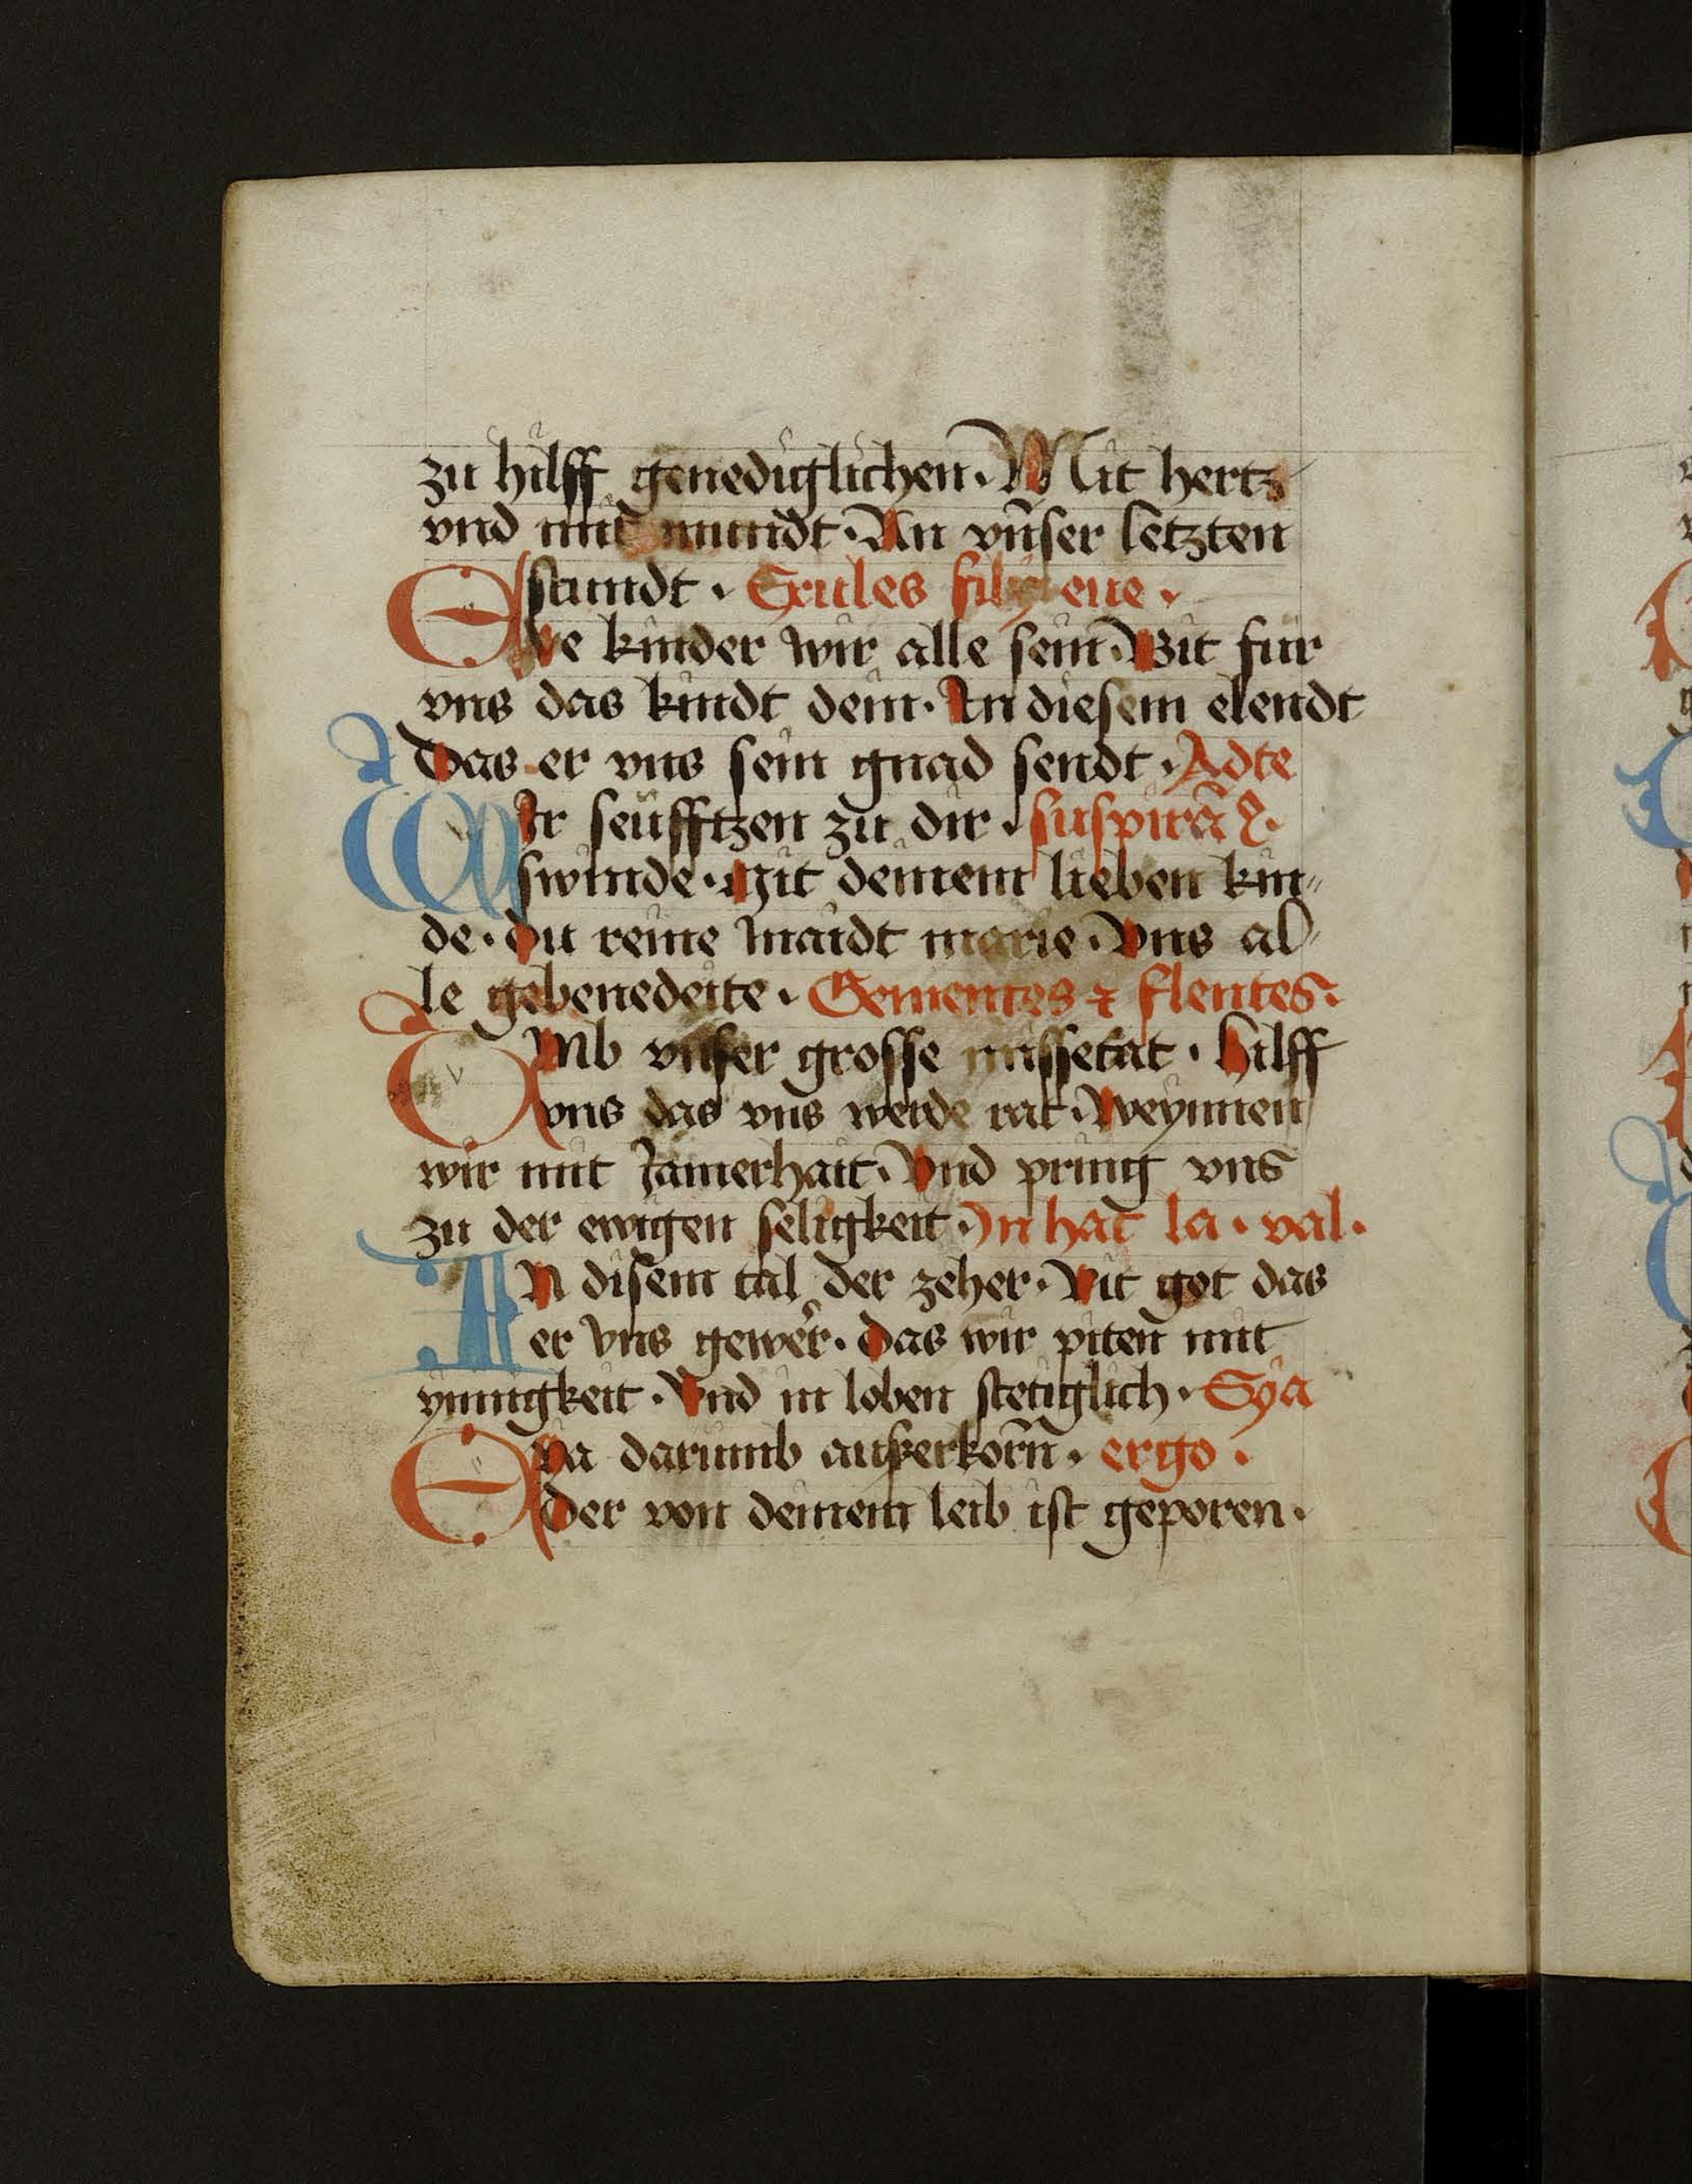 zu hilff genediglichen · Mit hertz
vnd mit mundt · An vñser letzten
stundt · Exules filij eue ·
Eve kinder wir alle sein · Bit fur
vns das kindt dein · An diesem elendt
Das er vns sein gnad sendt · Ad te
WIr seufftzen zu dir · suspirã
swinde · Mit deinem lieben kin〃
de · du reine maidt marie · Vns al〃
le gebenedeite · Gementes ⁊ flentes ·
VMb vnser grosse missetat · Hilff
vns das vns werde rat · Weynnen
wir mit Jamerhait · Vnd pring vns
zu der ewigen seligkeit · In hac la · val ·
IN disem tal der zeher · Bit got das
er vns gewer · das wir piten mit
ynnigkeit · Vnd in loben stetiglich · Eya
EYa darumb außerkorñ · ergo ·
der von deinem leib ist geporen ·